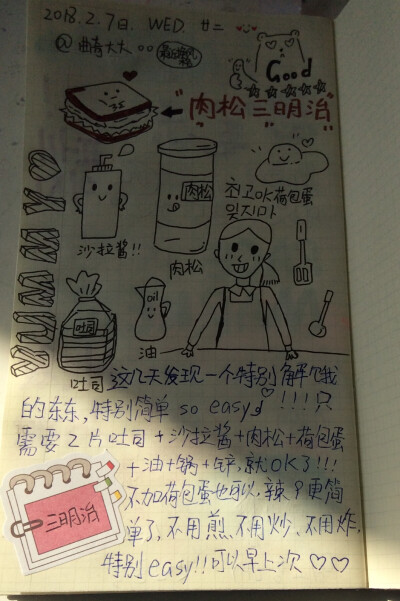 2018.2.7日. WED. 廿二
@曲奇大大
Good
"肉松三明治"
肉松
沙拉酱!!
肉松
최고OK荷包蛋
잊지마
吐司
吐司
oil
油
YUMMY
这几天发现一个特别解饿
的东东,特别简单 so easy!!!!只
需要2片吐司+沙拉酱+肉松+荷包蛋
+油+锅+锌,就OK了!!!
不加荷包蛋也可以,辣?更简
单了,不用煎、不用炒、不用炸,
特别easy!!可以早上次
三明治